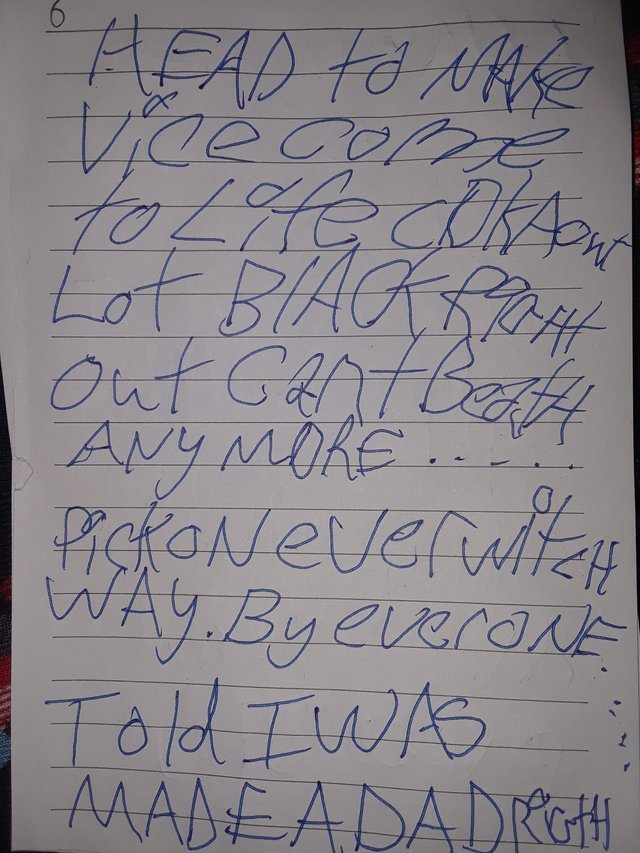 6
HEAD to MAKe
Vice come
to Life
Lot BlACK
Out Cant
ANY MORE . . . . . .
Pick oN eVer witcH
WAY. By everoNE.
Told I WAS
MADE A DAD